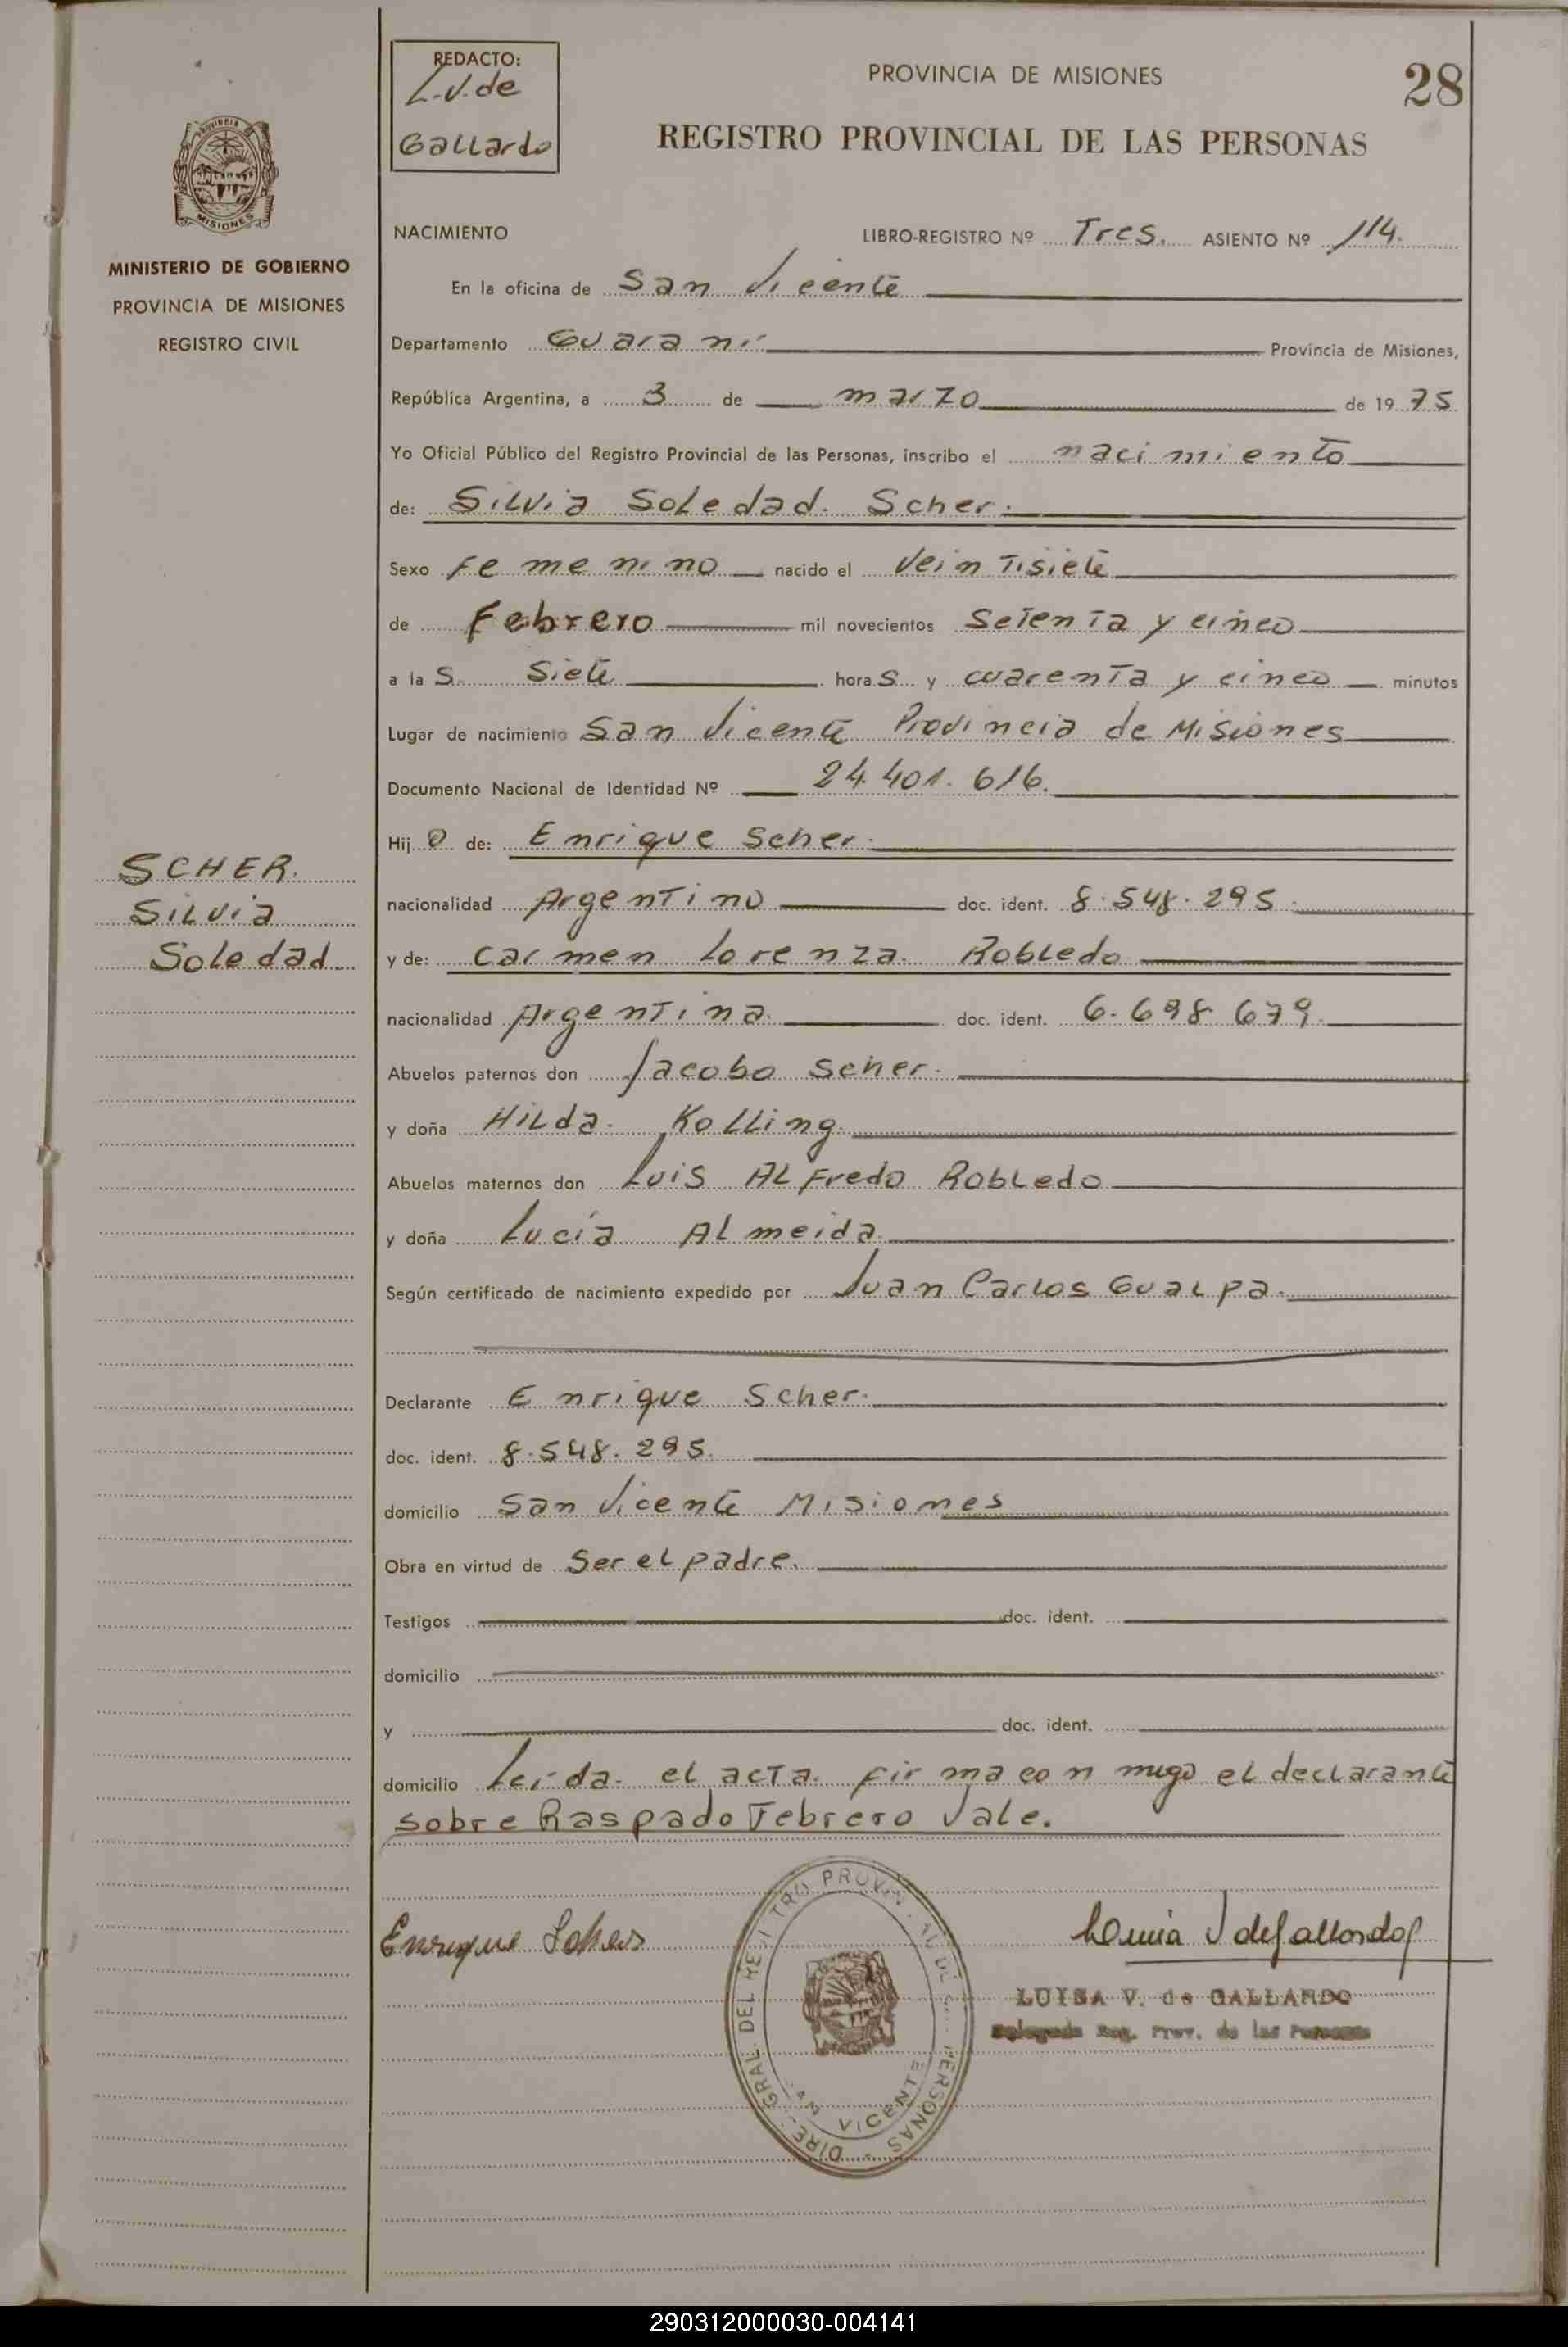 REDACTO:
L.V. de
Gallardo
PROVINCIA DE MISIONES
28
REGISTRO PROVINCIAL DE LAS PERSONAS
PROVINCIA
MISIONES
MINISTERIO DE GOBIERNO
PROVINCIA DE MISIONES
REGISTRO CIVIL
SCHER.
Silvia
Soledad
NACIMIENTO LIBRO-REGISTRO Nº Tres. ASIENTO Nº 114.
En la oficina de San Vicente
Departamento Guaraní Provincia de Misiones,
República Argentina, a 3 de marzo de 1975
Yo Oficial Público del Registro Provincial de las Personas, inscribo el nacimiento
de: Silvia Soledad. Scher.
Sexo Femenino nacido el Veintisiete
de Febrero mil novecientos Setenta y cinco
a la S. Siete hora S y cuarenta y cinco minutos
Lugar de nacimiento San Vicente Provincia de Misiones
Documento Nacional de Identidad Nº 24.401.616.
Hij o de: Enrique Scher.
nacionalidad Argentino doc. ident. 8.548.295.
y de: Carmen Lorenza. Robledo
nacionalidad Argentina. doc. ident. 6.698.679.
Abuelos paternos don Jacobo Scher.
y doña Hilda. Kolling.
Abuelos maternos don Luis Alfredo Robledo
y doña Lucía Almeida.
Según certificado de nacimiento expedido por Juan Carlos Gualpa.
Declarante Enrique Scher.
doc. ident. 8.548.295.
domicilio San Vicente Misiones
Obra en virtud de Ser el padre.
Testigos doc. ident.
domicilio
y doc. ident.
domicilio Leída. el acta. firma con migo el declarante
sobre Raspado Febrero Vale.
Enrique Scher
LUISA V. de GALLARDO
Delegada Reg. Prov. de las Personas
SAN VICENTE
290312000030-004141